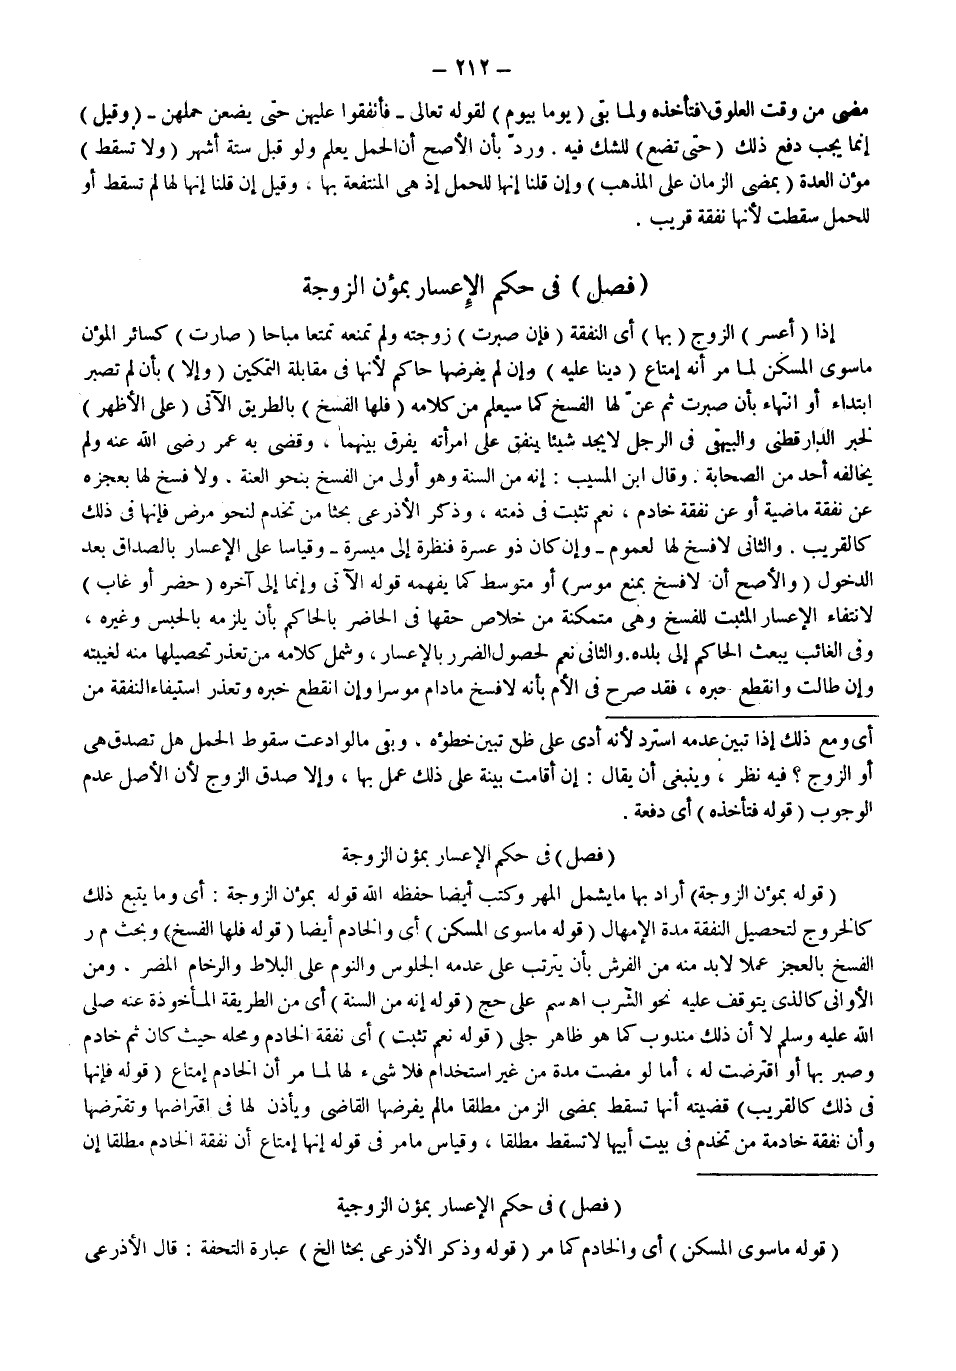 – ٢١٢ –
مضى من وقت العلوق فتأخذه ولما بقى ( يوما بيوم ) لقوله تعالى ـ فأنفقوا عليهن حتى يضعن حملهن ـ ( وقيل )
إنما يجب دفع ذلك ( حتى تضع ) للشك فيه . وردّ بأن الأصح أن الحمل يعلم ولو قبل ستة أشهر ( ولا تسقط )
مؤن العدة ( بمضى الزمان على المذهب ) وإن قلنا إنها للحمل إذ هى المنتفعة بها ، وقيل إن قلنا إنها لها لم تسقط أو
للحمل سقطت لأنها نفقة قريب .
( فصل ) فى حكم الإعسار بمؤن الزوجة
إذا ( أعسر ) الزوج ( بها ) أى النفقة ( فإن صبرت ) زوجته ولم تمنعه تمتعا مباحا ( صارت ) كسائر المؤن
ماسوى المسكن لما مر أنه إمتاع ( دينا عليه ) وإن لم يفرضها حاكم لأنها فى مقابلة التمكين ( وإلا ) بأن لم تصبر
ابتداء أو انتهاء بأن صبرت ثم عنّ لها الفسخ كما سيعلم من كلامه ( فلها الفسخ ) بالطريق الآتى ( على الأظهر )
لخبر الدارقطنى والبيهقى فى الرجل لايجد شيئا ينفق على امرأته يفرق بينهما ، وقضى به عمر رضى الله عنه ولم
يخالفه أحد من الصحابة . وقال ابن المسيب : إنه من السنة وهو أولى من الفسخ بنحو العنة . ولا فسخ لها بعجزه
عن نفقة ماضية أو عن نفقة خادم ، نعم تثبت فى ذمته ، وذكر الأذرعى بحثا من تخدم لنحو مرض فإنها فى ذلك
كالقريب . والثانى لافسخ لها لعموم ـ وإن كان ذو عسرة فنظرة إلى ميسرة ـ وقياسا على الإعسار بالصداق بعد
الدخول ( والأصح أن لافسخ بمنع موسر) أو متوسط كما يفهمه قوله الآتى وإنما إلى آخره ( حضر أو غاب )
لانتفاء الإعسار المثبت للفسخ وهى متمكنة من خلاص حقها فى الحاضر بالحاكم بأن يلزمه بالحبس وغيره ،
وفى الغائب يبعث الحاكم إلى بلده. والثانى نعم لحصول الضرر بالإعسار ، وشمل كلامه من تعذر تحصيلها منه لغيبته
وإن طالت وانقطع خبره ، فقد صرح فى الأم بأنه لافسخ مادام موسرا وإن انقطع خبره وتعذر استيفاء النفقة من
أى ومع ذلك إذا تبين عدمه استرد لأنه أدى على ظن تبين خطؤه . وبقى مالو ادعت سقوط الحمل هل تصدق هى
أو الزوج ؟ فيه نظر ، وينبغى أن يقال : إن أقامت بينة على ذلك عمل بها ، وإلا صدق الزوج لأن الأصل عدم
الوجوب ( قوله فتأخذه ) أى دفعة .
( فصل ) فى حكم الإعسار بمؤن الزوجة
( قوله بمؤن الزوجة) أراد بها مايشمل المهر وكتب أيضا حفظه الله قوله بمؤن الزوجة : أى وما يتبع ذلك
كالخروج لتحصيل النفقة مدة الإمهال ( قوله ماسوى المسكن ) أى والخادم أيضا ( قوله فلها الفسخ) وبحث م ر
الفسخ بالعجز عملا لابد منه من الفرش بأن يترتب على عدمه الجلوس والنوم على البلاط والرخام المضر . ومن
الأوانى كالذى يتوقف عليه نحو الشرب اه سم على حج ( قوله إنه من السنة ) أى من الطريقة المأخوذة عنه صلى
الله عليه وسلم لا أن ذلك مندوب كما هو ظاهر جلى ( قوله نعم تثبت ) أى نفقة الخادم ومحله حيث كان ثم خادم
وصبر بها أو اقترضت له ، أما لو مضت مدة من غير استخدام فلا شىء لها لما مر أن الخادم إمتاع ( قوله فإنها
فى ذلك كالقريب) قضيته أنها تسقط بمضى الزمن مطلقا مالم يفرضها القاضى ويأذن لها فى اقتراضها وتقترضها
وأن نفقة خادمة من تخدم فى بيت أبيها لاتسقط مطلقا ، وقياس مامر فى قوله إنها إمتاع أن نفقة الخادم مطلقا إن
( فصل ) فى حكم الإعسار بمؤن الزوجية
( قوله ماسوى المسكن ) أى والخادم كما مر ( قوله وذكر الأذرعى بحثا الخ ) عبارة التحفة : قال الأذرعى